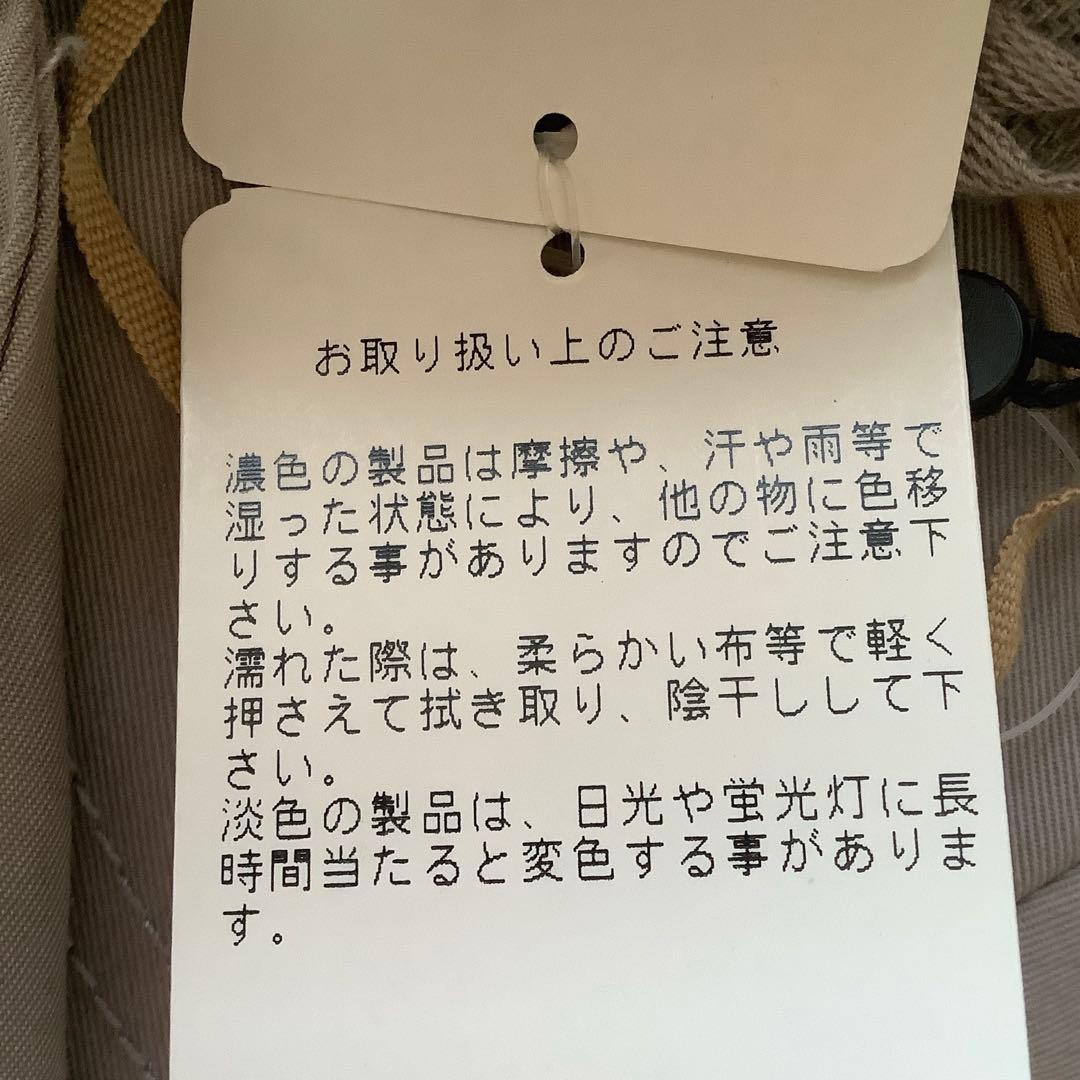 お取り扱い上のご注意
濃色の製品は摩擦や、汗や雨等で
湿った状態により、他の物に色移
りする事がありますのでご注意下
さい。
濡れた際は、柔らかい布等で軽く
押さえて拭き取り、陰干しして下
さい。
淡色の製品は、日光や蛍光灯に長
時間当たると変色する事がありま
す。